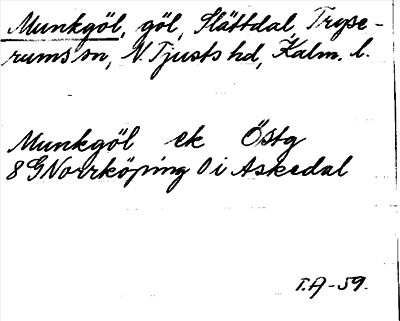 Munkgöl, göl, Slättdal, Tryse-
rums sn, N. Tjusts hd, Kalm. l.
Munkgöl ek Östg
8 G Norrköping O i Askedal
T.A-59.